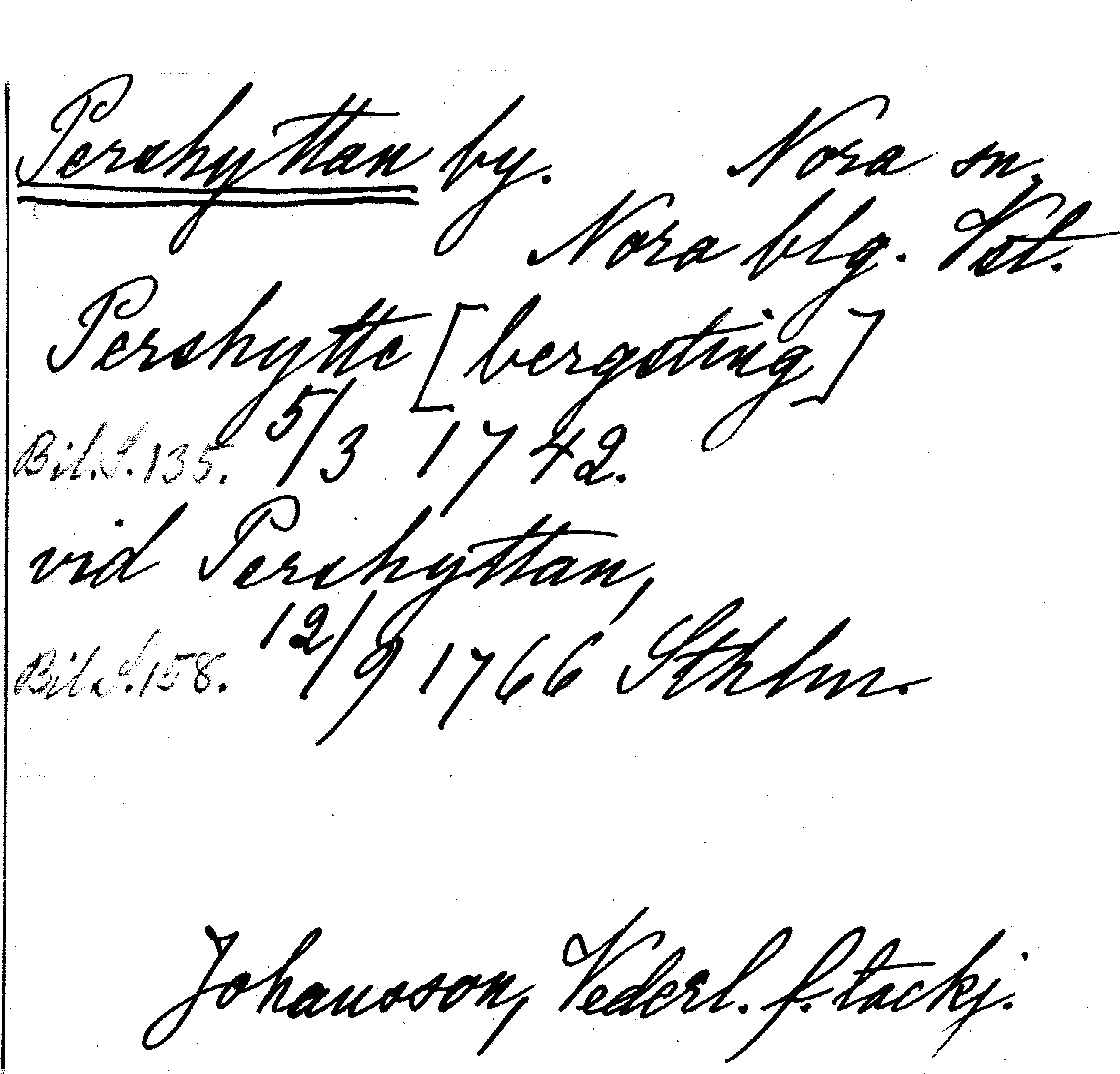 Pershyttan by. Nora sn,
Nora blg. Vstl.
Pershytte [bergsting]
Bil. S. 135. 5/3 1742.
vid Pershyttan,
Bil. S. 158. 12/9 1766 Sthlm.
Johansson, Vederl. f. tackj.